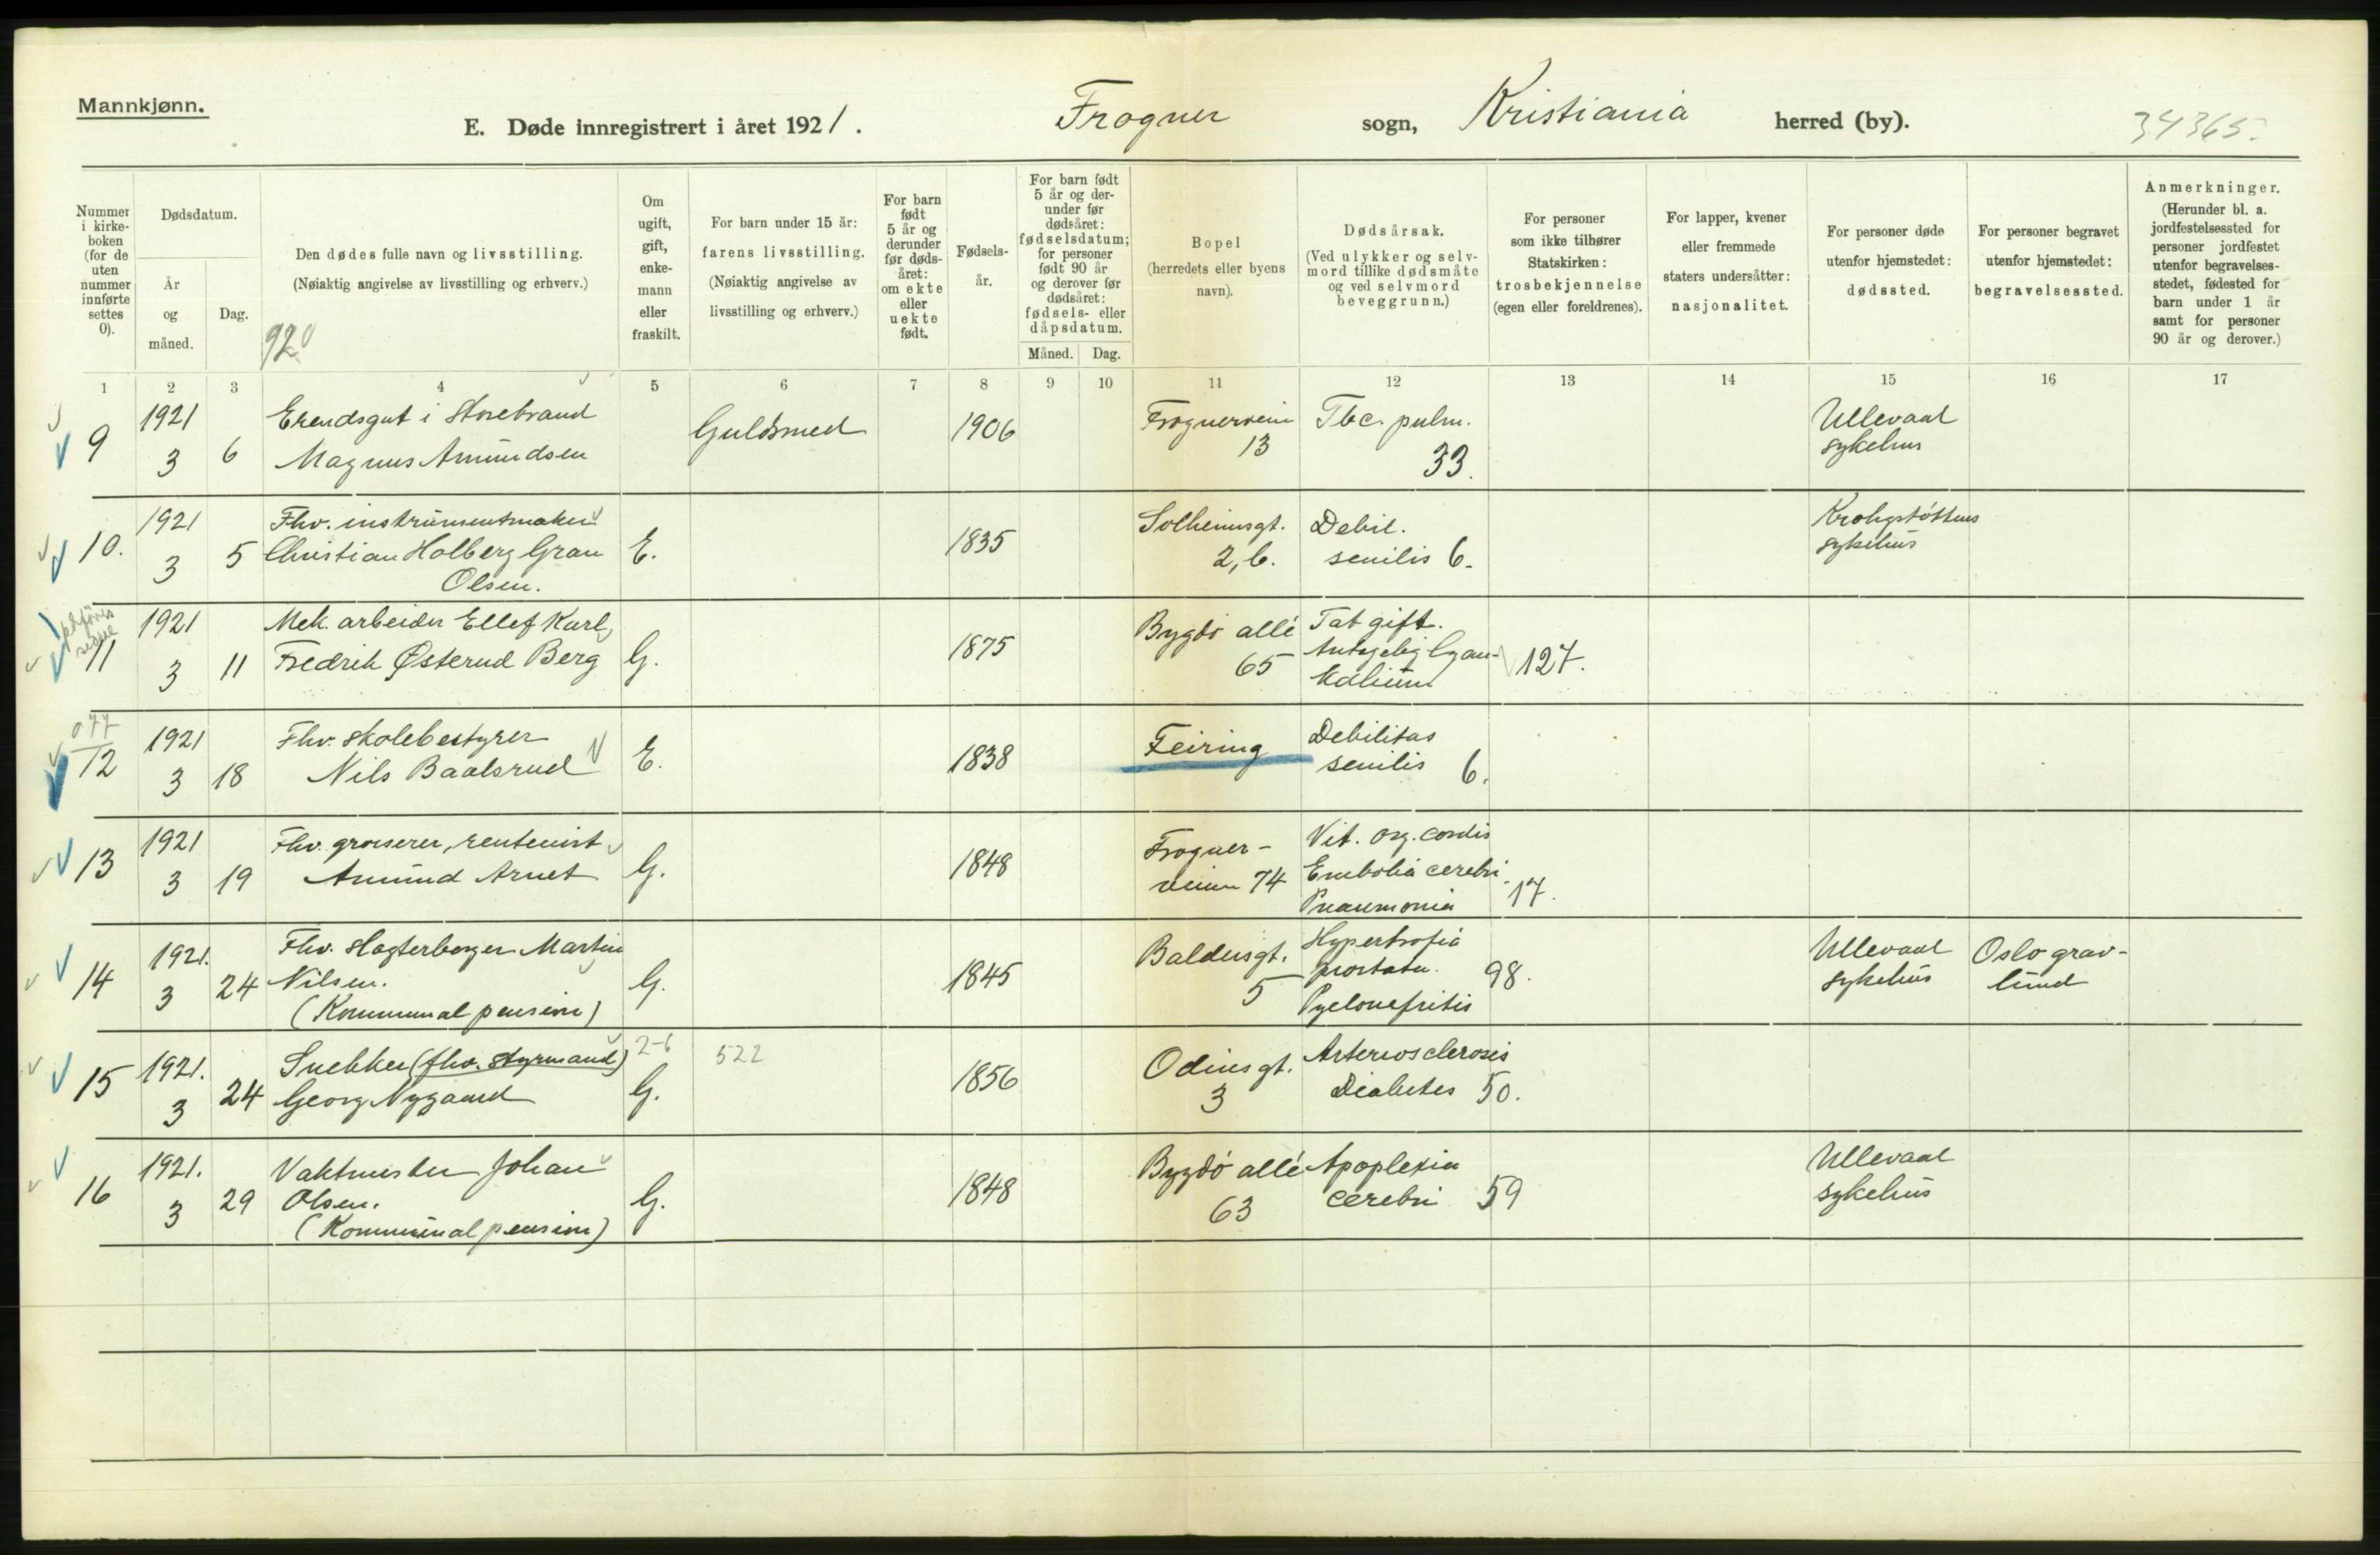 Mannkjønn.
E. Døde innregistrert i året 1921. Frogner sogn, Kristiania herred (by). 34365.
Nummer i kirke-boken (for de uten nummer innførte settes 0).
Dødsdatum.
År og måned.
Dag.
Den dødes fulle navn og livsstilling.
(Nøiaktig angivelse av livsstilling og erhverv.)
920
Om ugift, gift, enke-mann eller fraskilt.
For barn under 15 år:
farens livsstilling.
(Nøiaktig angivelse av
livsstilling og erhverv.)
For barn født 5 år og derunder før døds-året: om ekte eller uekte født.
Fødsels-år.
For barn født 5 år og der-under før dødsåret: fødselsdatum; for personer født 90 år og derover før dødsåret: fødsels- eller dåpsdatum.
Måned. Dag.
Bopel
(herredets eller byens
navn).
Dødsårsak.
(Ved ulykker og selv-
mord tillike dødsmåte
og ved selvmord
beveggrunn.)
For personer
som ikke tilhører
Statskirken:
trosbekjennelse
(egen eller foreldrenes).
For lapper, kvener
eller fremmede
staters undersåtter:
nasjonalitet.
For personer døde
utenfor hjemstedet:
dødssted.
For personer begravet
utenfor hjemstedet:
begravelsessted.
Anmerkninger.
(Herunder bl. a.
jordfestelsessted for
personer jordfestet
utenfor begravelses-
stedet, fødested for
barn under 1 år
samt for personer
90 år og derover.)
1 2 3 4 5 6 7 8 9 10 11 12 13 14 15 16 17
9 1921 3 6 Erendsgut i Storebrand
Magnus Amundsen
Guldsmed 1906 Frognervein
13
Tbc. pulm.
33.
Ullevaal
sykehus
10. 1921 3 5 Fhv. instrumentmaker
Christian Holberg Gran
Olsen.
E. 1835 Solheimsgt.
2, b.
Debil.
senilis 6.
Krohgstøttens
sykehus
11 1921 3 11 Mek. arbeider Ellef Karl
Fredrik Østerud Berg
G. 1875 Bygdö allé
65
Tat gift.
Antagelig Cyan-
kalium
127.
077
12 1921 3 18 Fhv. skolebestyrer
Nils Baalsrud
E. 1838 Feiring Debilitas
senilis 6.
13 1921 3 19 Fhv. grosserer, rentenist
Amund Arnet
G. 1848 Frogner-
veien 74
Vit. org. cordis
Embolia cerebri.
Pneumonia 17.
14 1921. 3 24 Fhv. slagterborger Martin
Nilsen.
(Kommunal pension)
G. 1845 Baldersgt.
5
Hypertrofia
prostata. 98.
Pyelonefritis
Ullevaal
sykehus
Oslo grav-
lund
15 1921. 3 24 Snekker (fhv. styrmand)
Georg Nygaard
2-6
G. 522 1856 Odinsgt.
3
Arteriosclerosis
Diabetes 50.
16 1921. 3 29 Vaktmester Johan
Olsen.
(Kommunal pension)
G. 1848 Bygdö allé
63
Apoplexia
cerebri 59
Ullevaal
sykehus